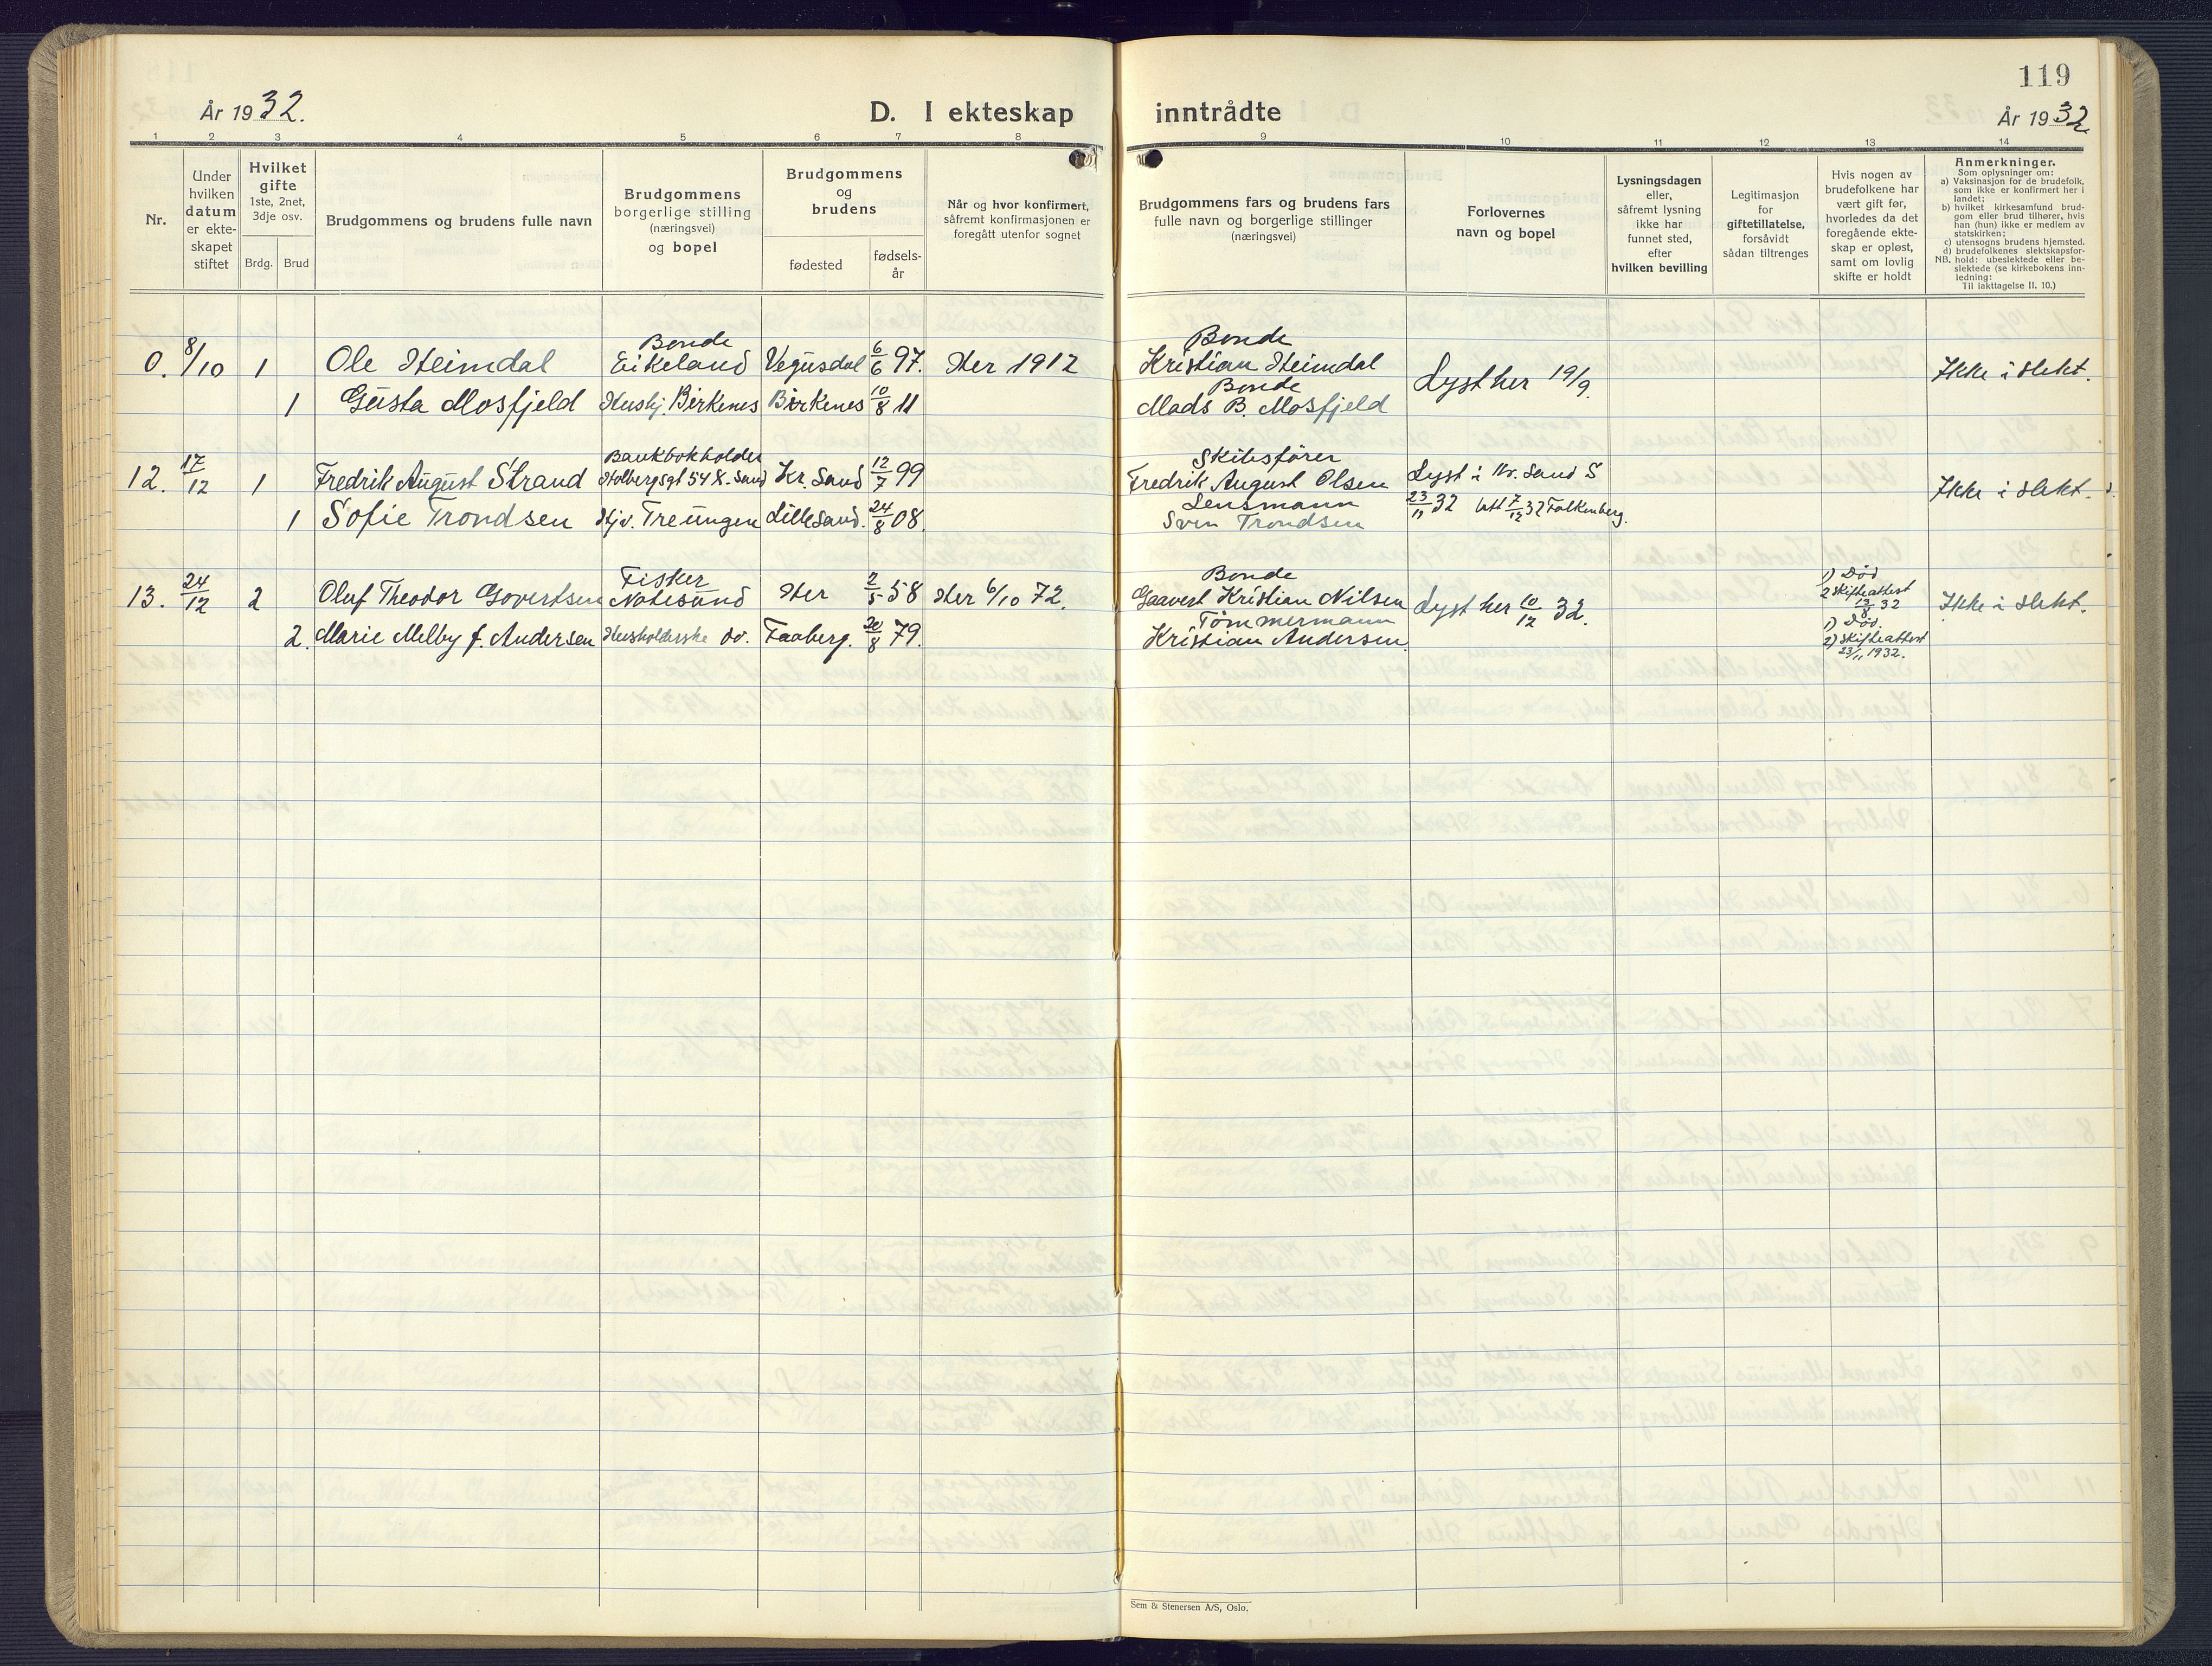 119
År 1932.
D. I ekteskap inntrådte
År 1932
1 2 3 4 5 6 7 8 9 10 11 12 13 14
Nr.
Under hvilken datum er ekte-skapet stiftet
Hvilket gifte 1ste, 2net, 3dje osv.
Brdg. Brud
Brudgommens og brudens fulle navn
Brudgommens borgerlige stilling (næringsvei) og bopel
Brudgommens og brudens
fødested
fødsels-år
Når og hvor konfirmert, såfremt konfirmasjonen er foregått utenfor sognet
Brudgommens fars og brudens fars fulle navn og borgerlige stillinger (næringsvei)
Forlovernes navn og bopel
Lysningsdagen eller, såfremt lysning ikke har funnet sted, efter hvilken bevilling
Legitimasjon for giftetillatelse, forsåvidt sådan tiltrenges
Hvis nogen av brudefolkene har vært gift før, hvorledes da det foregående ekte-skap er opløst, samt om lovlig skifte er holdt
Anmerkninger.
Som oplysninger om:
a) Vaksinasjon for de brudefolk, som ikke er konfirmert her i landet;
b) hvilket kirkesamfund brud-gom eller brud tilhører, hvis han (hun) ikke er medlem av statskirken;
c) utensogns brudens hjemsted.
d) brudefolkenes slektskapsfor-hold: ubeslektede eller be-slektede (se kirkebokens inn-ledning:
NB.
Til iakttagelse II. 10.)
Bonde Bonde
0. 8/10 1 Ole Heimdal Eikeland Vegusdal 6/6 97. Her 1912 Kristian Heimdal Lyst her 19/9. Ikke i slekt.
Bonde
1 Gusta Mosfjeld Hushj. Birkenes Birkenes 10/8 11 Mads B. Mosfjeld
Bankbokholder Skibsfører
12. 17/12 1 Fredrik August Strand Holbergsgt 54 K. Sand Kr. Sand 12/7 99 Fredrik August Olsen Lyst i Kr. Sand S Ikke i slekt.
Lensmann 23/11 32 7/12 32 Falkenberg.
1 Sofie Trondsen Hjv. Treungen Lillesand. 24/8 08. Sven Trondsen
Fisker Bonde 1) Død
13. 24/12 2 Oluf Theodor Govertsen Notesund Her 2/5 58 Her 6/10 72. Gaavert Kristian Nilsen Lyst her 10/12 32. 2 Skifteattest 13/8 32 Ikke i slekt.
Tømmermann 1) Død.
2. Marie Melby f. Andersen Husholderske do. Faaberg. 20/8 79. Kristian Andersen. 2) Skifteattest 23/11 1932.
Sem & Stenersen A/S, Oslo.